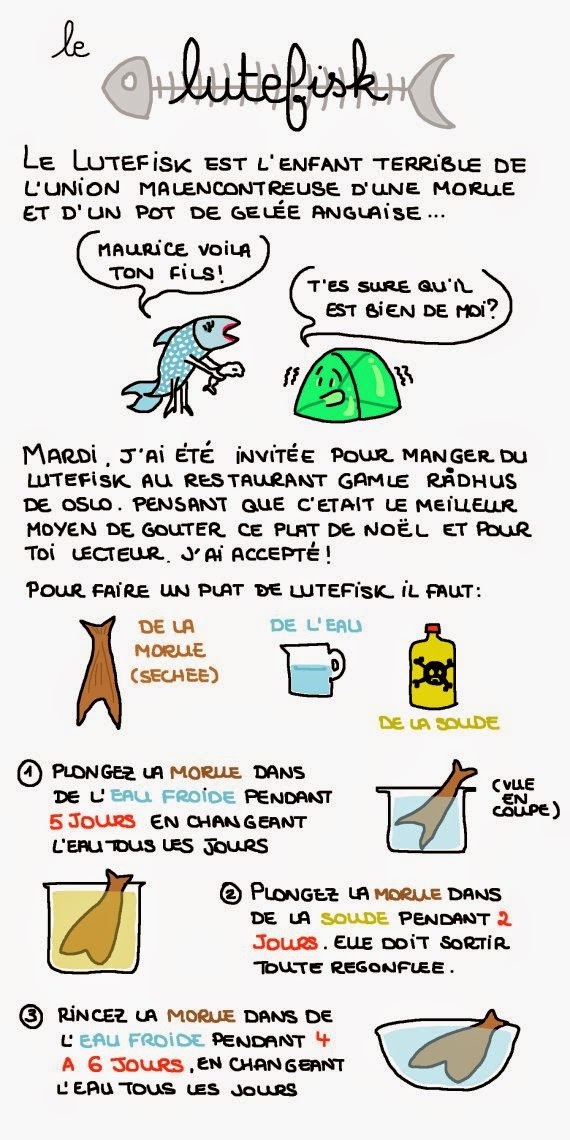 le
lutefisk
LE LUTEFISK EST L'ENFANT TERRIBLE DE
L'UNION MALENCONTREUSE D'UNE MORUE
ET D'UN POT DE GELÉE ANGLAISE ...
MAURICE VOILA
TON FILS!
T'ES SURE QU'IL
EST BIEN DE MOI?
MARDI, J'AI ÉTÉ INVITÉE POUR MANGER DU
LUTEFISK AU RESTAURANT GAMLE RÅDHUS
DE OSLO. PENSANT QUE C'ETAIT LE MEILLEUR
MOYEN DE GOUTER CE PLAT DE NOËL ET POUR
TOI LECTEUR. J'AI ACCEPTÉ!
POUR FAIRE UN PLAT DE LUTEFISK IL FAUT:
DE LA
MORUE
(SECHEE)
DE L'EAU
DE LA SOUDE
1 PLONGEZ LA MORUE DANS
DE L'EAU FROIDE PENDANT
5 JOURS EN CHANGEANT
L'EAU TOUS LES JOURS
(VUE
EN
COUPE)
2 PLONGEZ LA MORUE DANS
DE LA SOUDE PENDANT 2
JOURS. ELLE DOIT SORTIR
TOUTE REGONFLEE.
3 RINCEZ LA MORUE DANS DE
L'EAU FROIDE PENDANT 4
A 6 JOURS, EN CHANGEANT
L'EAU TOUS LES JOURS